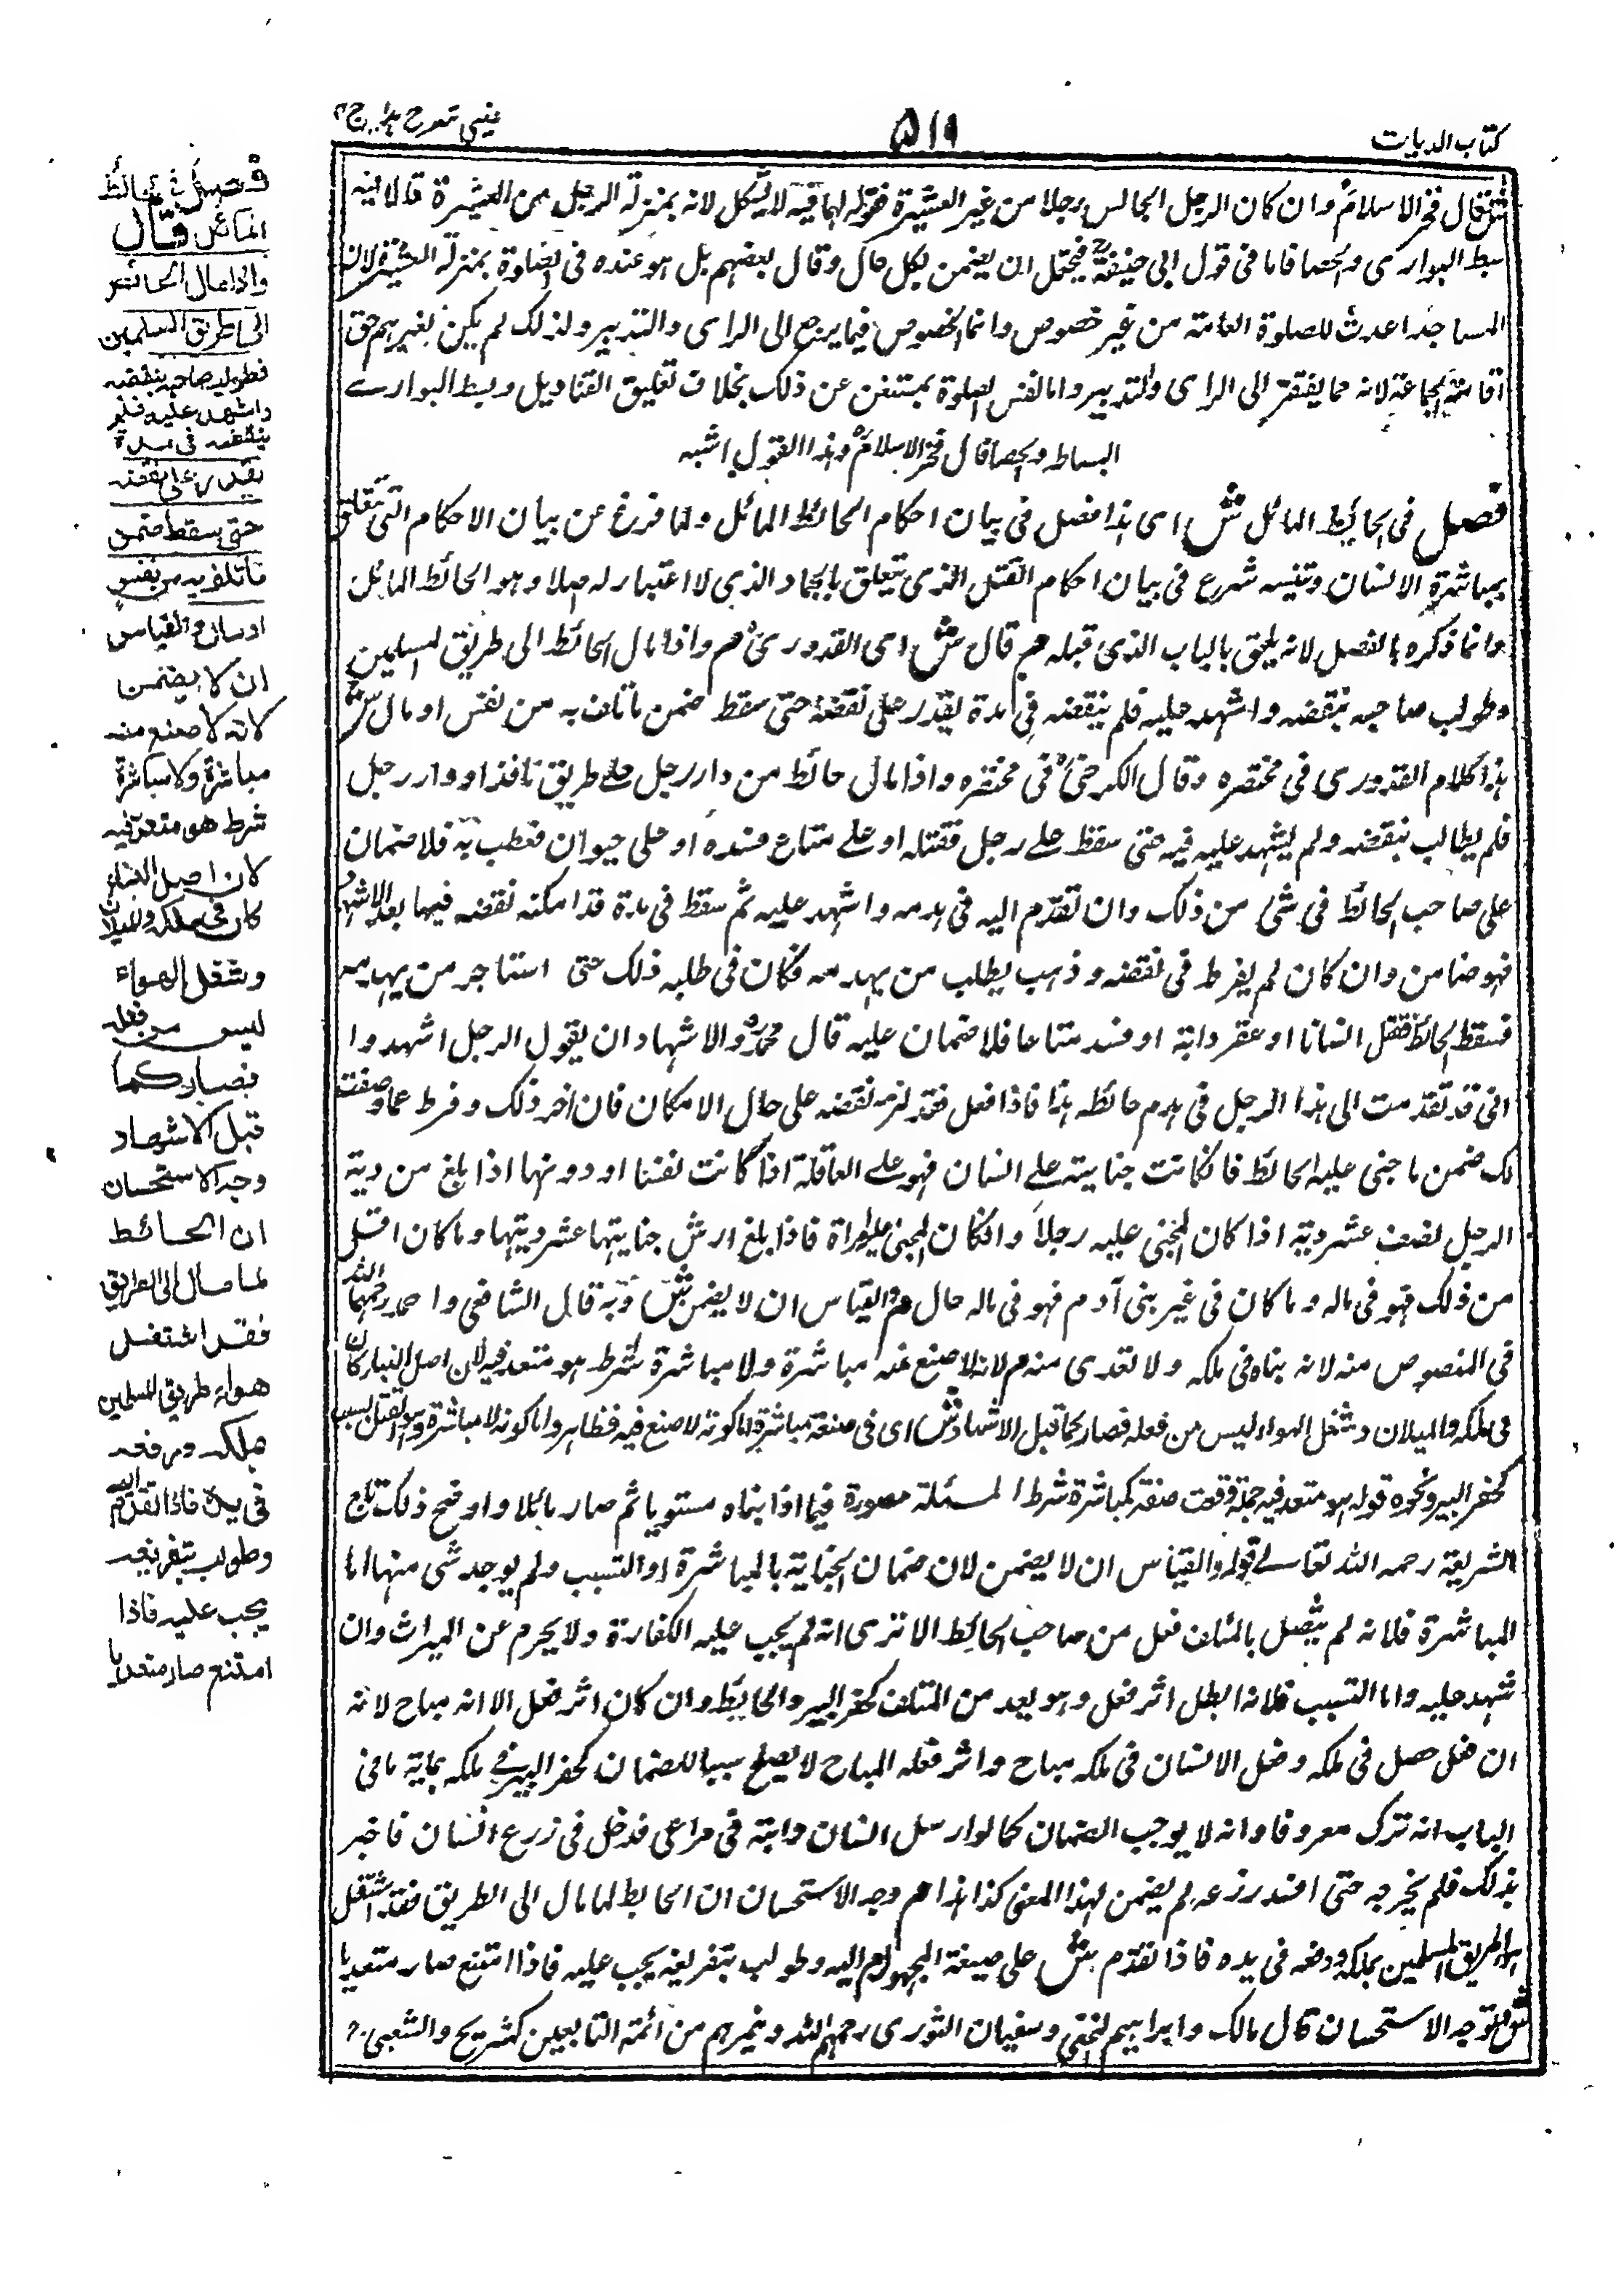 كتاب الديات
٥١١
عينى شرح هدايه ج ٤
ش قال فخر الاسلام وان كان الرجل الجالس رجلا من غير العشيرة فقوله لهما فيه لا يشكل لانه بمنزلة الرجل من العشيرة قالا فيه
بسط البوارى والحصا فاما فى قول ابى حنيفة فيحتمل ان يضمن بكل حال وقال بعضهم بل هو عنده فى الصلوة بمنزلة العشيرة لان
المساجد اعدت للصلوة العامة من غير خصوص وانما الخصوص فيما يرجع الى الراى والتدبير ولذلك لم يكن لغيرهم حق
اقامة الجماعة لانه مما يفتقر الى الراى والتدبير واما نفس الصلوة بمستغن عن ذلك بخلاف تعليق القناديل وبسط البوارے
البساط والحصا قال فخر الاسلام وهذا القول اشبه
فصل فى الحائط المائل ش اى هذا فصل فى بيان احكام الحائط المائل ولما فرغ عن بيان الاحكام التى تتعلق
بمباشرة الانسان وتسببه شرع فى بيان احكام القتل الذى يتعلق بالجماد الذى لا اعتبار له اصلا وهو الحائط المائل
وانما ذكره بالفصل لانه يلحق بالباب الذى قبله م قال ش اى القدورى م واذا مال الحائط الى طريق المسلمين
وطولب صاحبه بنقضه واشهد عليه فلم ينقضه فى مدة يقدر على نقضه حتى سقط ضمن ما تلف به من نفس او مال ش
هذا كلام القدورى فى مختصره وقال الكرخى فى مختصره واذا مال حائط من دار رجل على طريق نافذ او دار رجل
فلم يطالب بنقضه ولم يشهد عليه فيه حتى سقط على رجل فقتله او على متاع فسده او على حيوان فعطب به فلا ضمان
على صاحب الحائط فى شئ من ذلك وان تقدم اليه فى هدمه واشهد عليه ثم سقط فى مدة قد امكنه نقضه فيها بعد الاشهاد
فهو ضامن وان كان لم يفرط فى نقضه وذهب يطلب من يهدمه فكان فى طلبه ذلك حتى استاجر من يهدمه
فسقط الحائط فقتل انسانا او عقر دابة او فسد متاعا فلا ضمان عليه قال محمد والاشهاد ان يقول الرجل اشهدوا
انى قد تقدمت الى هذا الرجل فى هدم حائطه هذا فاذا فعل فقد لزمه نقضه على حال الامكان فان اخر ذلك وفرط عما وصفت
لك ضمن ما جنى عليه الحائط فان كانت جناية على انسان فهو على العاقلة اذا كانت نفسا او دونها اذا بلغ من دية
الرجل نصف عشر دية اذا كان المجنى عليه رجلا وان كان المجنى عليه امراة فاذا بلغ ارش جنايتها عشر ديتها وما كان اقل
من ذلك فهو فى ماله وما كان فى غير بنى آدم فهو فى ماله حال م والقياس ان لا يضمن ش وبه قال الشافعى واحمد رحمهما الله
فى المنصوص منه لانه بناه فى ملكه ولا تعدى منه م لانه لا صنع منه مباشرة ولا مباشرة شرط هو متعد فيه لان اصل البناء كان
فى ملكه والميلان وشغل الهواء ليس من فعله فصار كما قبل الاشهاد ش اى فى صنعة مباشرة اما كونه لا صنع فيه فظاهر واما كونه لا مباشرة وهو القتل بسبب
كحفر البير ونحوه قوله هو متعد فيه جملة وقعت صفة كمباشرة شرط المسئلة مصورة فيما اذا بناه مستويا ثم صار مائلا واوضح ذلك تاج
الشريعة رحمه الله تعالى قوله والقياس ان لا يضمن لان ضمان الجناية بالمباشرة او التسبب ولم يوجد شى منهما اما
المباشرة فلانه لم يتصل بالمتلف فعل من صاحب الحائط الا ترى انه لم يجب عليه الكفارة ولا يحرم عن الميراث وان
شهد عليه واما التسبب فلانه ابطل اثر فعل وهو يعد من المتلف كحفر البير والحائط وان كان اثر فعل الا انه مباح لانه
ان فعل حصل فى ملكه وفعل الانسان فى ملكه مباح واثر فعله المباح لا يصلح سببا للضمان كحفر البير فى ملكه بماية ما فى
الباب انه ترك معروفا وانه لا يوجب الضمان كما لو ارسل انسان دابة فى مراعى فدخل فى زرع انسان فاخبر
بذلك فلم يخرجه حتى افسد زرعه لم يضمن لهذا المعنى كذا هذا م وجه الاستحسان ان الحايط لما مال الى الطريق فقد اشتغل
هواء طريق المسلمين بملكه ودفعه فى يده فاذا تقدم ش على صيغة المجهول م اليه وطولب بتفريغه يجب عليه فاذا امتنع صار متعديا
ش وبوجه الاستحسان قال مالك وابراهيم النخعى وسفيان الثورى رحمهم الله وغيرهم من ائمة التابعين كشريح والشعبى
فصل فى الحائط
المائل قال
واذا مال الحائط
الى طريق المسلمين
فطولب صاحبه بنقضه
واشهد عليه فلم
ينقضه فى مدة
يقدر على نقضه
حتى سقط ضمن
ما تلف به من نفس
او مال والقياس
ان لا يضمن
لانه لا صنع منه
مباشرة ولا مباشرة
شرط هو متعد فيه
لان اصل البناء
كان فى ملكه والميلان
وشغل الهواء
ليس من فعله
فصار كما
قبل الاشهاد
وجه الاستحسان
ان الحائط
لما مال الى الطريق
فقد اشتغل
هواء طريق المسلمين
بملكه ودفعه
فى يده فاذا تقدم اليه
وطولب بتفريغه
يجب عليه فاذا
امتنع صار متعديا